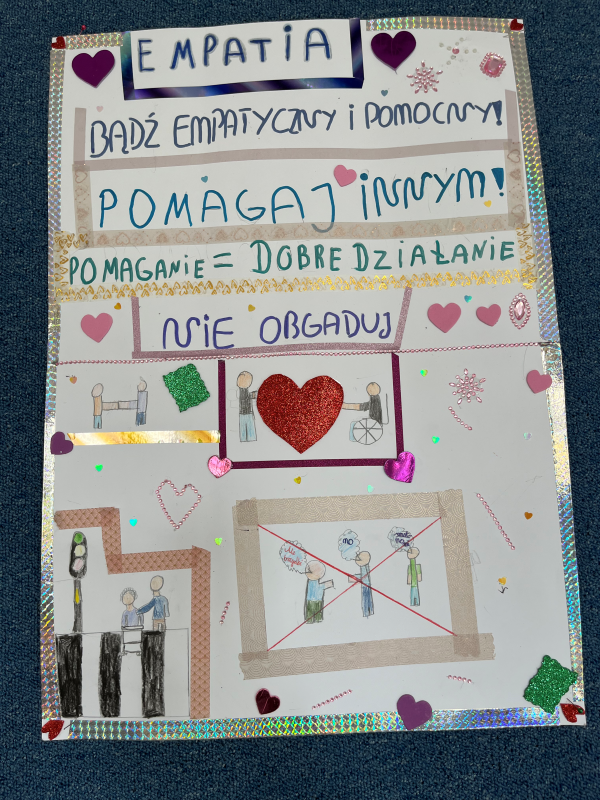 EMPATIA
BĄDŹ EMPATYCZNY i POMOCNY!
POMAGAJ iNNYM!
POMAGANiE = DOBRE DZiAŁANiE
NiE OBGADUJ
Ale
NO